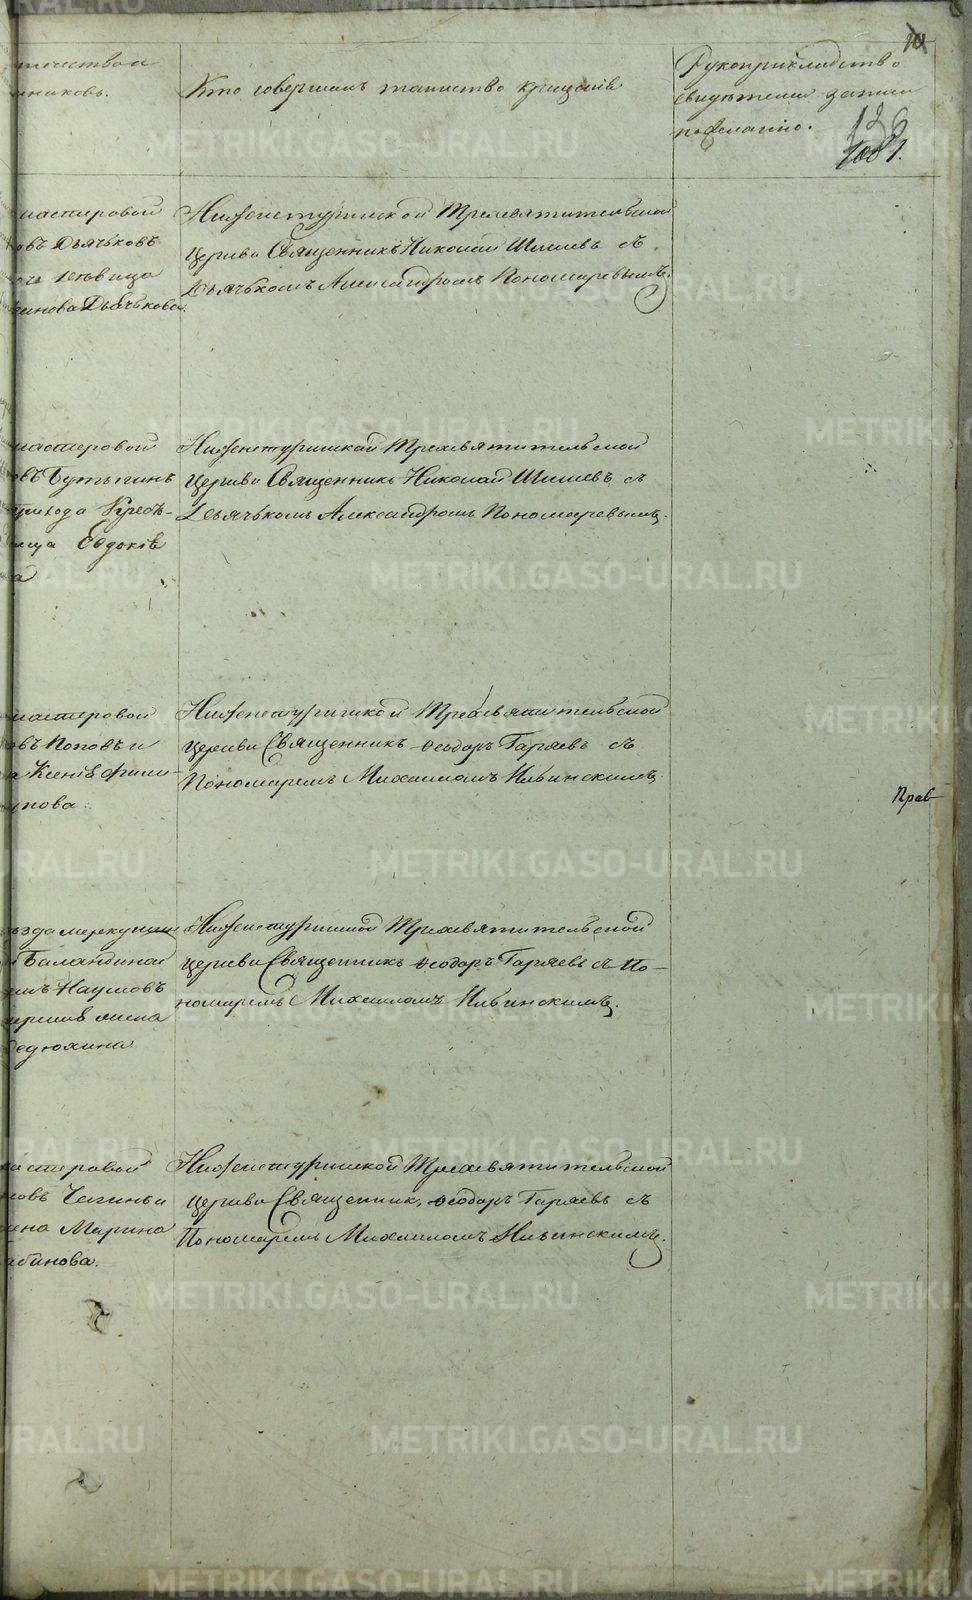 10
течествои
никовъ.
Кто совершалъ таинство крещенія
Рукоприкладство
свидѣтелей записи
по желанію.
136
1081.
мастеровой
овъ Дьячковъ
Дьячкова.
Нижнетуринской Трехсвятительской
церкви Священникъ Николай Шишевъ съ
Дьячькомъ Александромъ Пономаревымъ.
мастеровой
прихода
Евдокія
Нижнетуринской Трехсвятительской
церкви Священникъ Николай Шишевъ съ
Дьячькомъ Александромъ Пономаревымъ.
мастеровой
овъ Поповъ и
Ксенія Фили-
пова.
Нижнетуринской Трехсвятительской
церкви Священникъ Ѳеодоръ Гаряевъ съ
Пономаремъ Михаиломъ Ильинскимъ.
Прав
Баландина
Наумовъ
Нижнетуринской Трехсвятительской
церкви Священникъ Ѳеодоръ Гаряевъ съ По-
номаремъ Михаиломъ Ильинскимъ.
мастеровой
Марина
бинова.
Нижнетуринской Трехсвятительской
церкви Священникъ Ѳеодоръ Гаряевъ съ
Пономаремъ Михаиломъ Ильинскимъ.
METRIKI.GASO-URAL.RU